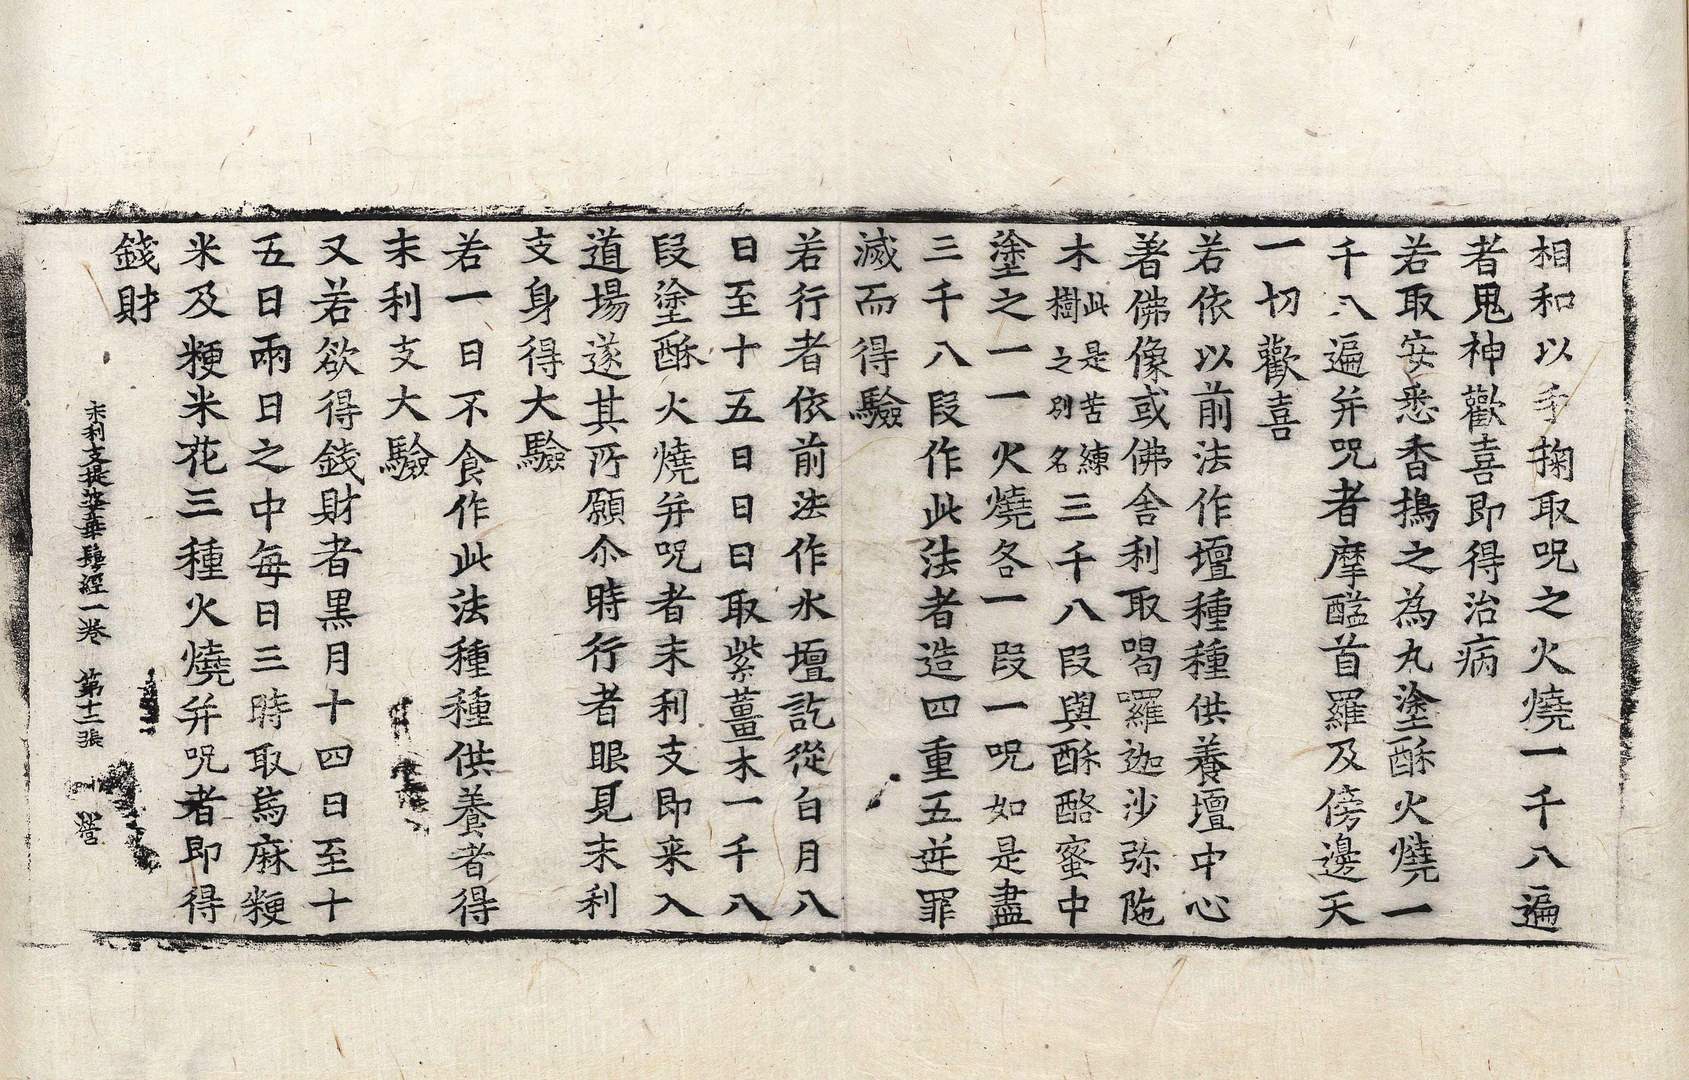 相和以手掬取呪之火燒一千八遍
者鬼神歡喜即得治病
若取安悉香擣之為丸塗酥火燒一
千八遍并呪者摩醯首羅及傍邊天
一切歡喜
若依以前法作壇種種供養壇中心
著佛像或佛舍利取喝囉迦沙弥陁
木此是苦練樹之别名三千八段與酥酪蜜中
塗之一一火燒各一段一呪如是盡
三千八段作此法者造四重五逆罪
滅而得驗
若行者依前法作水壇訖從白月八
日至十五日日日取紫薑木一千八
段塗酥火燒并呪者末利支即来入
道場遂其所願尒時行者眼見末利
支身得大驗
若一日不食作此法種種供養者得
末利支大驗
又若欲得錢財者黒月十四日至十
五日兩日之中每日三時取烏麻粳
米及粳米花三種火燒并呪者即得
錢財
末利支提婆華鬘經一卷 第十二張 營